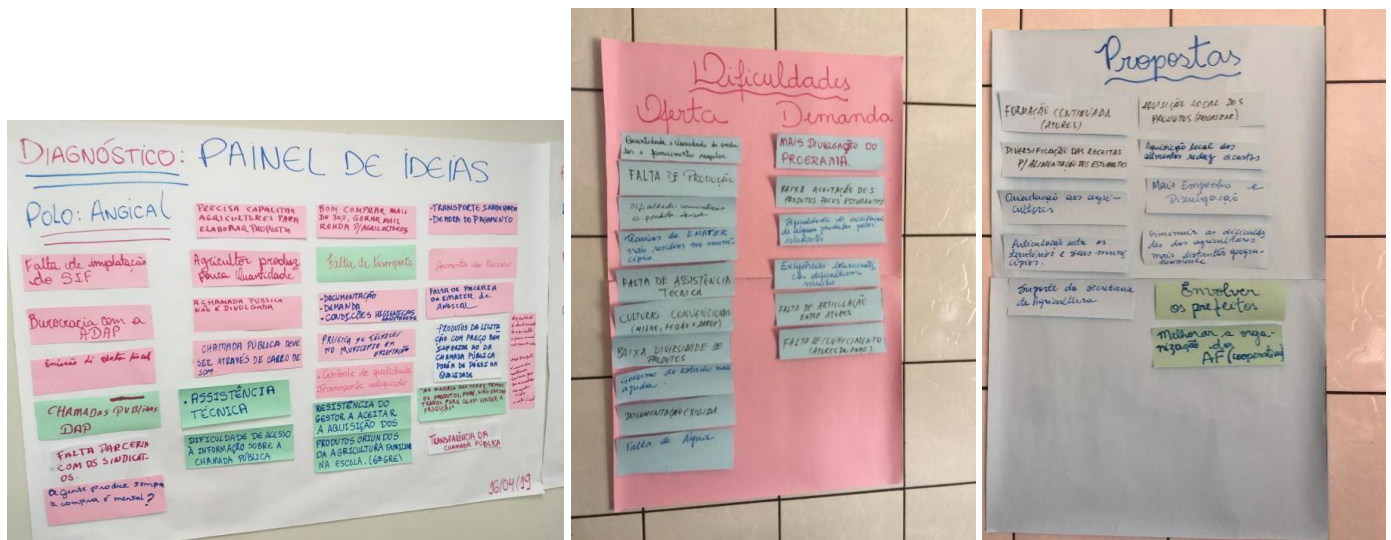 DIAGNÓSTICO: PAINEL DE IDEIAS
POLO: ANGICAL
Falta de implatação
do SIF
Burocracia com a
ADAP
Emissão di nota fiscal
CHAMADAS PUBLICAS
DAP
FALTA PARCERIA
COM OS SINDICAT-
OS.
a gente produz sempre
a compra é mensal?
PRECISA CAPACITAR
AGRICULTORES PARA
ELABORAR PROPOSTA
Agricultor produz
pouca quantidade
A CHAMADA PÚBLICA
NÃO É DIVULGADA
CHAMADA PÚBLICA DEVE
SER ATRAVÉS DE CARRO DE
SOM.
• ASSISTÊNCIA
TÉCNICA
DIFICULDADE DE ACESSO
À INFORMAÇÃO SOBRE A
CHAMADA PÚBLICA
BOM COMPRAR MAIS
DO 30%, GERAR MAIS
RENDA P/AGRICULTORES
Falta de transporte
• DOCUMENTAÇÃO
• DEMANDA
• CONDIÇÕES HIGIENICAS
SANITÁRIAS
TÉCNICOS
NO MUNICIPIO EM
ORIENTAÇÃO
• Controle de qualidade
Transporte adequado
RESISTÊNCIA DO
GESTOR A ACEITAR
A AQUISIÇÃO DOS
PRODUTOS ORIUNDOS
DA AGRICULTURA FAMILIAR
NA ESCOLA. (6ª GRE)
- TRANSPORTE
- DEMORA DO PAGAMENTO
Aumento do Recurso
FALTA DE PARCERIA
DO EMATER de
ANGICAL
- PRODUTOS DA LICITA
ÇÃO COM PREÇO BEM
SUPERIOR AO DA
CHAMADA PÚBLICA
PORÉM DE PÉSSIMA
QUALIDADE
TRANSPARÊNCIA DA
CHAMADA PÚBLICA
16/04/19
Dificuldades
Oferta
Quantidade e Variedade de produ
tos e fornecimento regular
FALTA DE PRODUÇÃO
Técnicos do EMATER
não residem no muni
cípio
FALTA DE ASSISTÊNCIA
TÉCNICA
CULTURAS CONVENCIONAIS
(MILHO, FEIJÃO E ARROZ)
BAIXA DIVERSIDADE DE
PRODUTOS
Governo do estado não
ajuda.
DOCUMENTAÇÃO EXIGIDA
Falta de Água
Demanda
MAIS DIVULGAÇÃO DO
PROGRAMA.
BAIXA ACEITAÇÃO DOS
PRODUTOS PELOS ESTUDANTES
Dificuldade de aceitação
de alguns produtos pelos
estudantes
Exigências burocráti
cas dificultam
muito
FALTA DE ARTICULAÇÃO
ENTRE ATORES
FALTA DE CONHECIMENTO
(ATORES DO PNAE)
Propostas
FORMAÇÃO CONTINUADA
(ATORES)
DIVERSIFICAÇÃO DAS RECEITAS
P/ ALIMENTAÇÃO DOS ESTUDANTES
Orientação aos agri-
cultores
Articulação entre os
territórios e seus muni
cípios.
Suporte da Secretaria
de Agricultura
AQUISIÇÃO LOCAL DOS
PRODUTOS (PRIORIZAR)
Aquisição local dos
alimentos reduz os custos
Mais Empenho e
Divulgação
Diminuir as dificulda
des dos agricultores
mais distantes geogra-
ficamente
Envolver
os prefeitos
Melhorar a orga-
nização dos
AF (cooperativa)